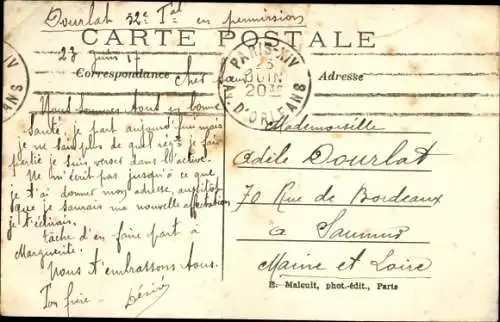 Dourlat 32e Tal en permission
CARTE POSTALE
23 juin 17
Correspondance
Adresse
PARIS-XIV
23
JUIN
20 30
AV. D'ORLEANS
Cher
Nous sommes tous en bonne
santé je part aujourd'hui mais
je ne sais plus de quel régt je fais
partie je suis verser dans l'active.
Ne m'écrit pas jusqu'à ce que
je t'ai donner mon adresse, aussitôt
que je saurais ma nouvelle affectation
je t'écrirais.
tâche d'en faire part à
Marguerite.
Nous t'embrassons tous.
Ton frère - Désiré
Mademoiselle
Adèle Dourlat
70 Rue de Bordeaux
à Saumur
Maine et Loire
E. Malcuit, phot.-édit., Paris